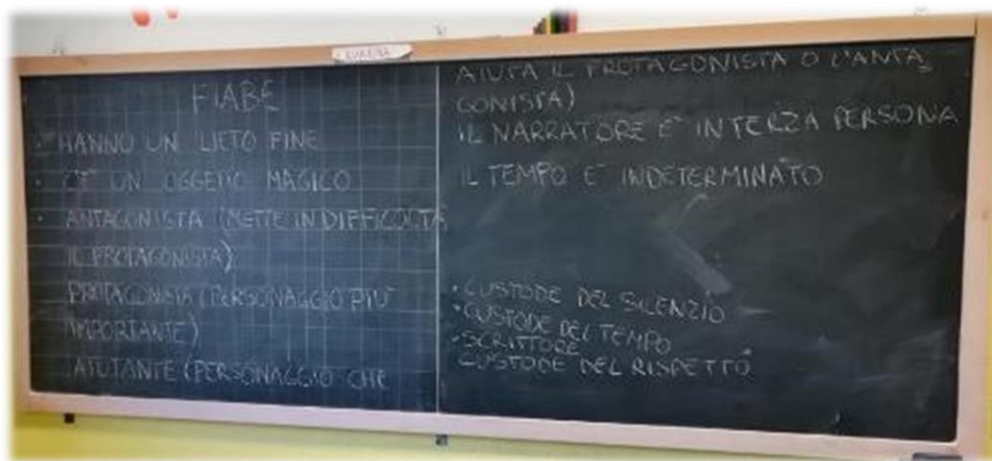 FIABE
• HANNO UN LIETO FINE
• C'È UN OGGETTO MAGICO
• ANTAGONISTA (METTE IN DIFFICOLTÀ
IL PROTAGONISTA)
PROTAGONISTA (PERSONAGGIO PIÙ
IMPORTANTE)
AIUTANTE (PERSONAGGIO CHE
AIUTA IL PROTAGONISTA O L'ANTA=
GONISTA)
IL NARRATORE È IN TERZA PERSONA
IL TEMPO È INDETERMINATO
• CUSTODE DEL SILENZIO
• CUSTODE DEL TEMPO
• SCRITTORE
CUSTODE DEL RISPETTO